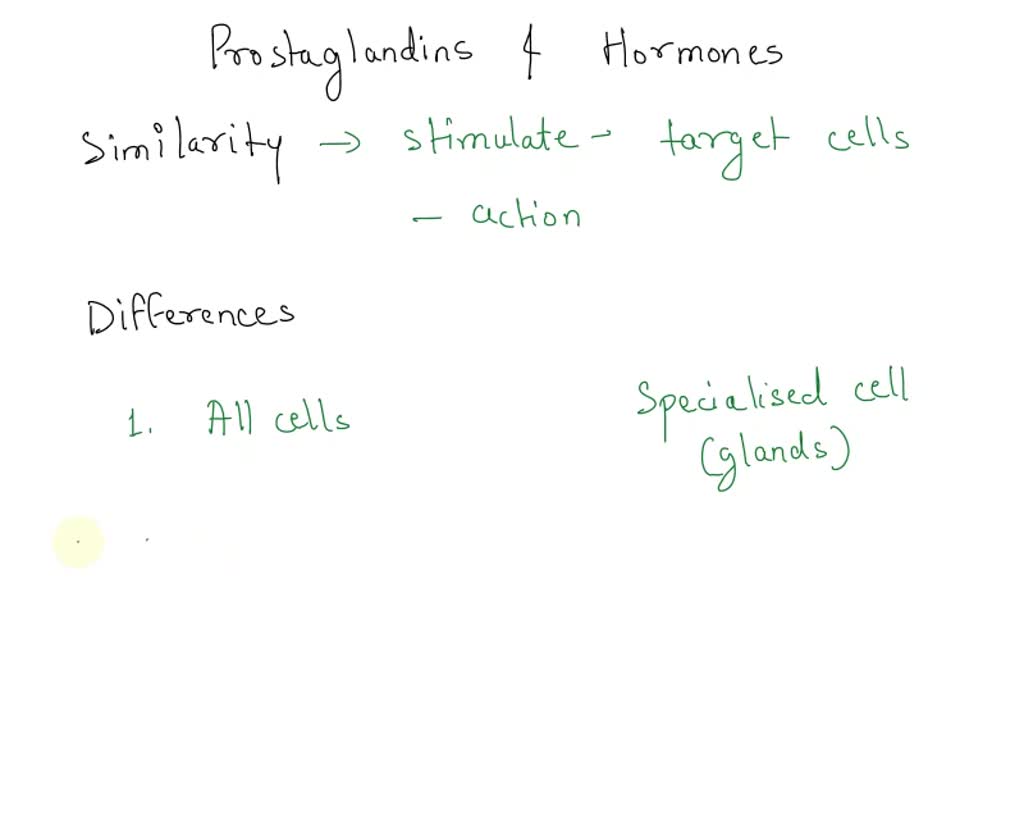 Prostaglandins & Hormones
Similarity → stimulate - target cells
- action
Differences
1. All cells Specialised cell
(glands)